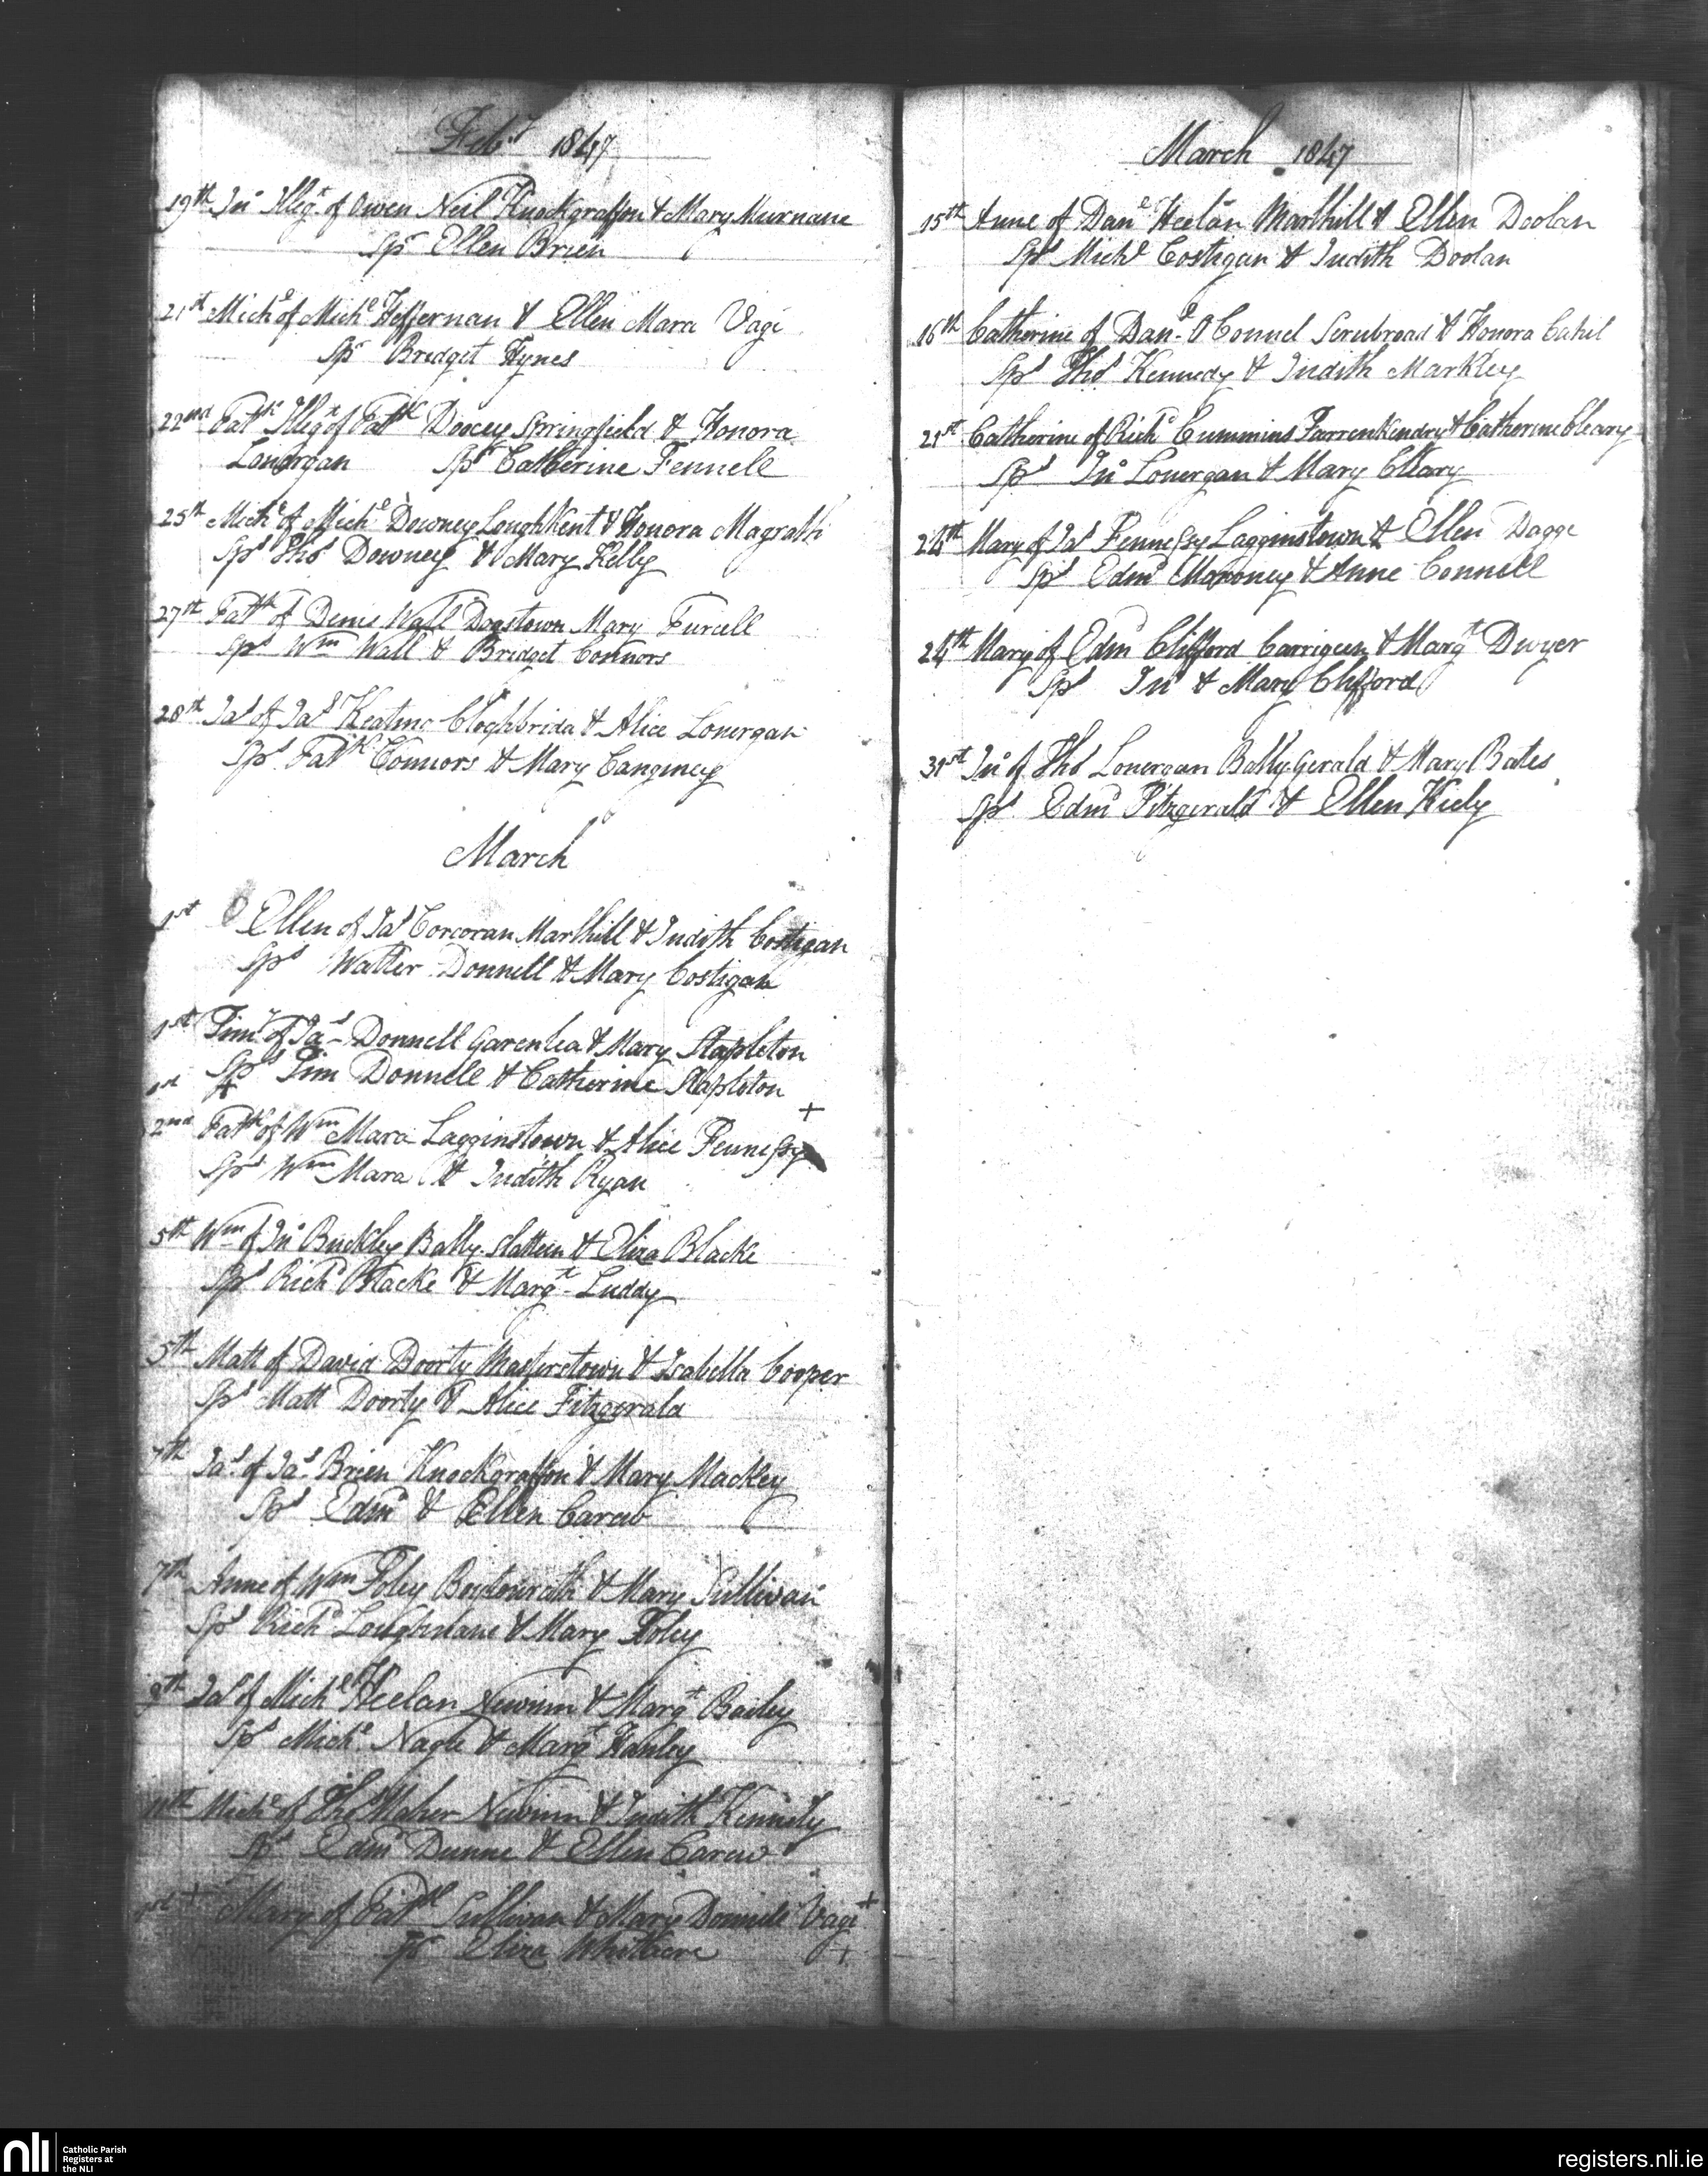 Feby 1847
19th Jno Illegt. of Owen Neil Knockgraffon & Mary Murnane
Spr Ellen Brien
21st Michl of Michl Heffernan & Ellen Mara Vagi
Spr Bredget Hynes
22nd Patk Illegt of Patk Doocey Springfield & Honora
Lonergan Spr Catherine Fennell
25th Michl of Michl Downey Loughkent & Honora Magrath
Sprs Thos Downey & Mary Kelly
27st Patk of Denis Wall Dogstown Mary Purcell
Sprs Wm Wall & Bredget Connors
28st Jas of Jas Keating Cloghbrida & Alice Lonergan
Sps Patk Connors & Mary
March
1st Ellen of Jas Corcoran Marlhill & Judith Costigan
Sps Walter Donnell & Mary Costigan
1st Timy of Jas Donnell Garenlea & Mary Stapleton
Sps Tim Donnell & Catherine Stapleton
1st +
2nd Patk of Wm Mara Lagginstown & Alice Fennessy +
Sps Wm Mara & Judith Ryan
5th Wm of Jno Buckley Bally-slatteen & Eliza Blacke
Sps Richd Blacke & Margt Luddy
5th Matt of David Doorty Masterstown & Isabella Cooper
Sps Matt Doorty & Alice Fitzgerald
7th Jas of Jas Brien Knockgraffon & Mary Mackey
Sps Edmd & Ellen Carew
7th Anne of Wm Foley Boytonrath & Mary Sullivan
Sps Richd Loughnane & Mary Foley
9th Jas of Michl Heelan Newinn & Margt Bailey
Sps Michl Nagle & Margt Hanley
11th Michl of Thos Maher Newinn & Judith Kennedy
Sps Edmd Dunne & Ellen Carew
1st + Mary of Patk Sullivan & Mary Donnell Vagi +
Sps Eliza +
March 1847
15th Anne of Danl Heelan Marlhill & Ellen Doolan
Sps Michl Costigan & Judith Doolan
16th Catherine of Danl O Connel Scrubroad & Honora Cahil
Sps Thos Kennedy & Judith Markley
21st Catherine of Richd Cummins Farrenkendry & Catherine Cleary
Sps Jno Lonergan & Mary Cleary
24th Mary of Jas Fennessy Lagginstown & Ellen Dagge
Sps Edmd Moroney & Anne Connell
24th Mary of Edmd Clifford Carrigeen & Margt Dwyer
Sps Jno & Mary Clifford
31st Jno of Thos Lonergan Bally-Gerald & Mary Bates
Sps Edmd Fitzgerald & Ellen Kiely
nli Catholic Parish
Registers at
the NLI
registers.nli.ie